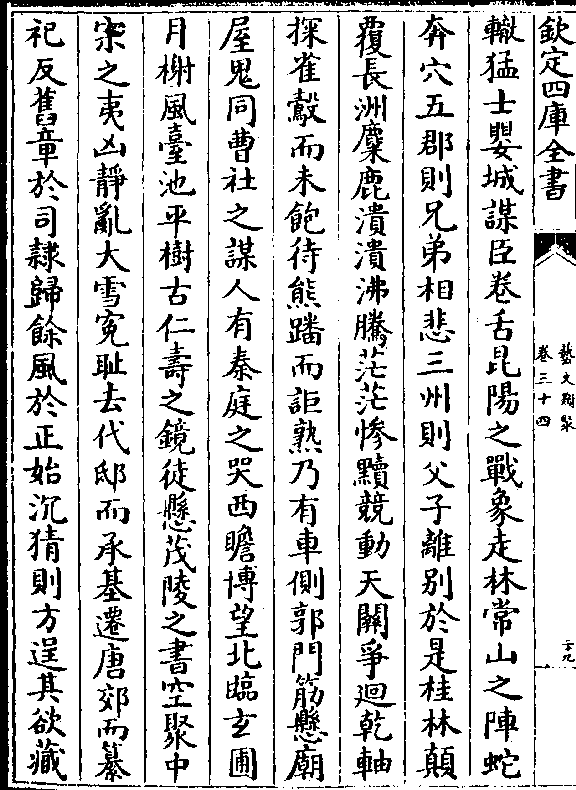 欽定四庫全書
藝文類聚
卷三十四
二十九
轍猛士嬰城謀臣卷舌昆陽之戰象走林常山之陣蛇
奔穴五郡則兄弟相悲三州則父子離别於是桂林顛
覆長洲麋鹿潰潰沸騰茫茫慘黷競動天關爭迴乾軸
探雀鷇而未飽待熊蹯而詎熟乃有車側郭門筋懸廟
屋鬼同曹社之謀人有秦庭之哭西瞻博望北臨玄圃
月榭風臺池平樹古仁壽之鏡徒懸茂陵之書空聚中
宗之夷凶靜亂大雪寃耻去代邸而承基遷唐郊而纂
祀反舊章於司隸歸餘風於正始沉猜則方逞其欲藏